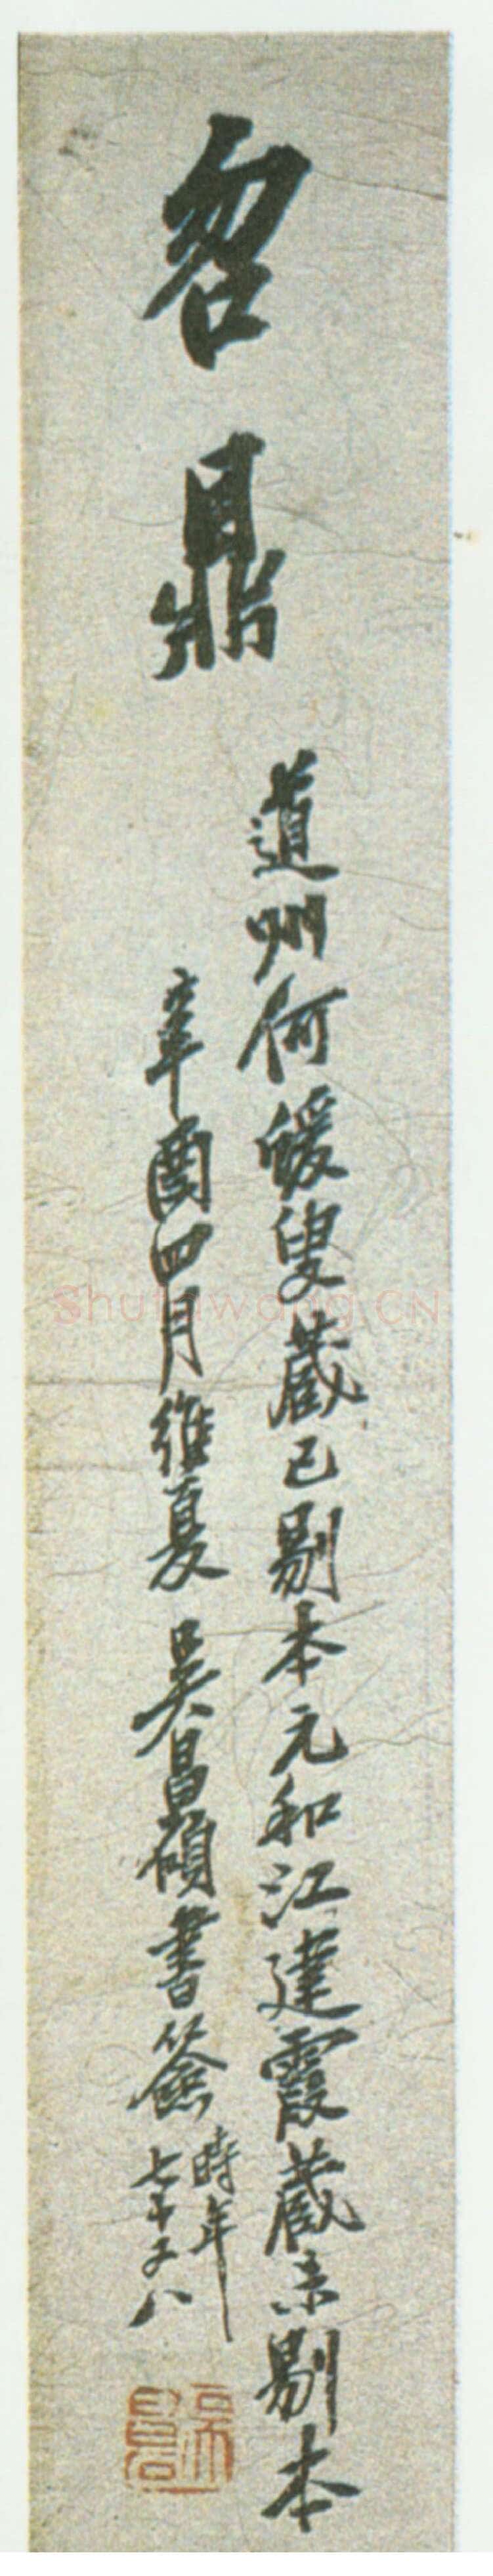 曶鼎
道州何蝯叟藏已剔本元和江建霞藏未剔本
辛酉四月維夏 吳昌碩書簽
時年
七十又八